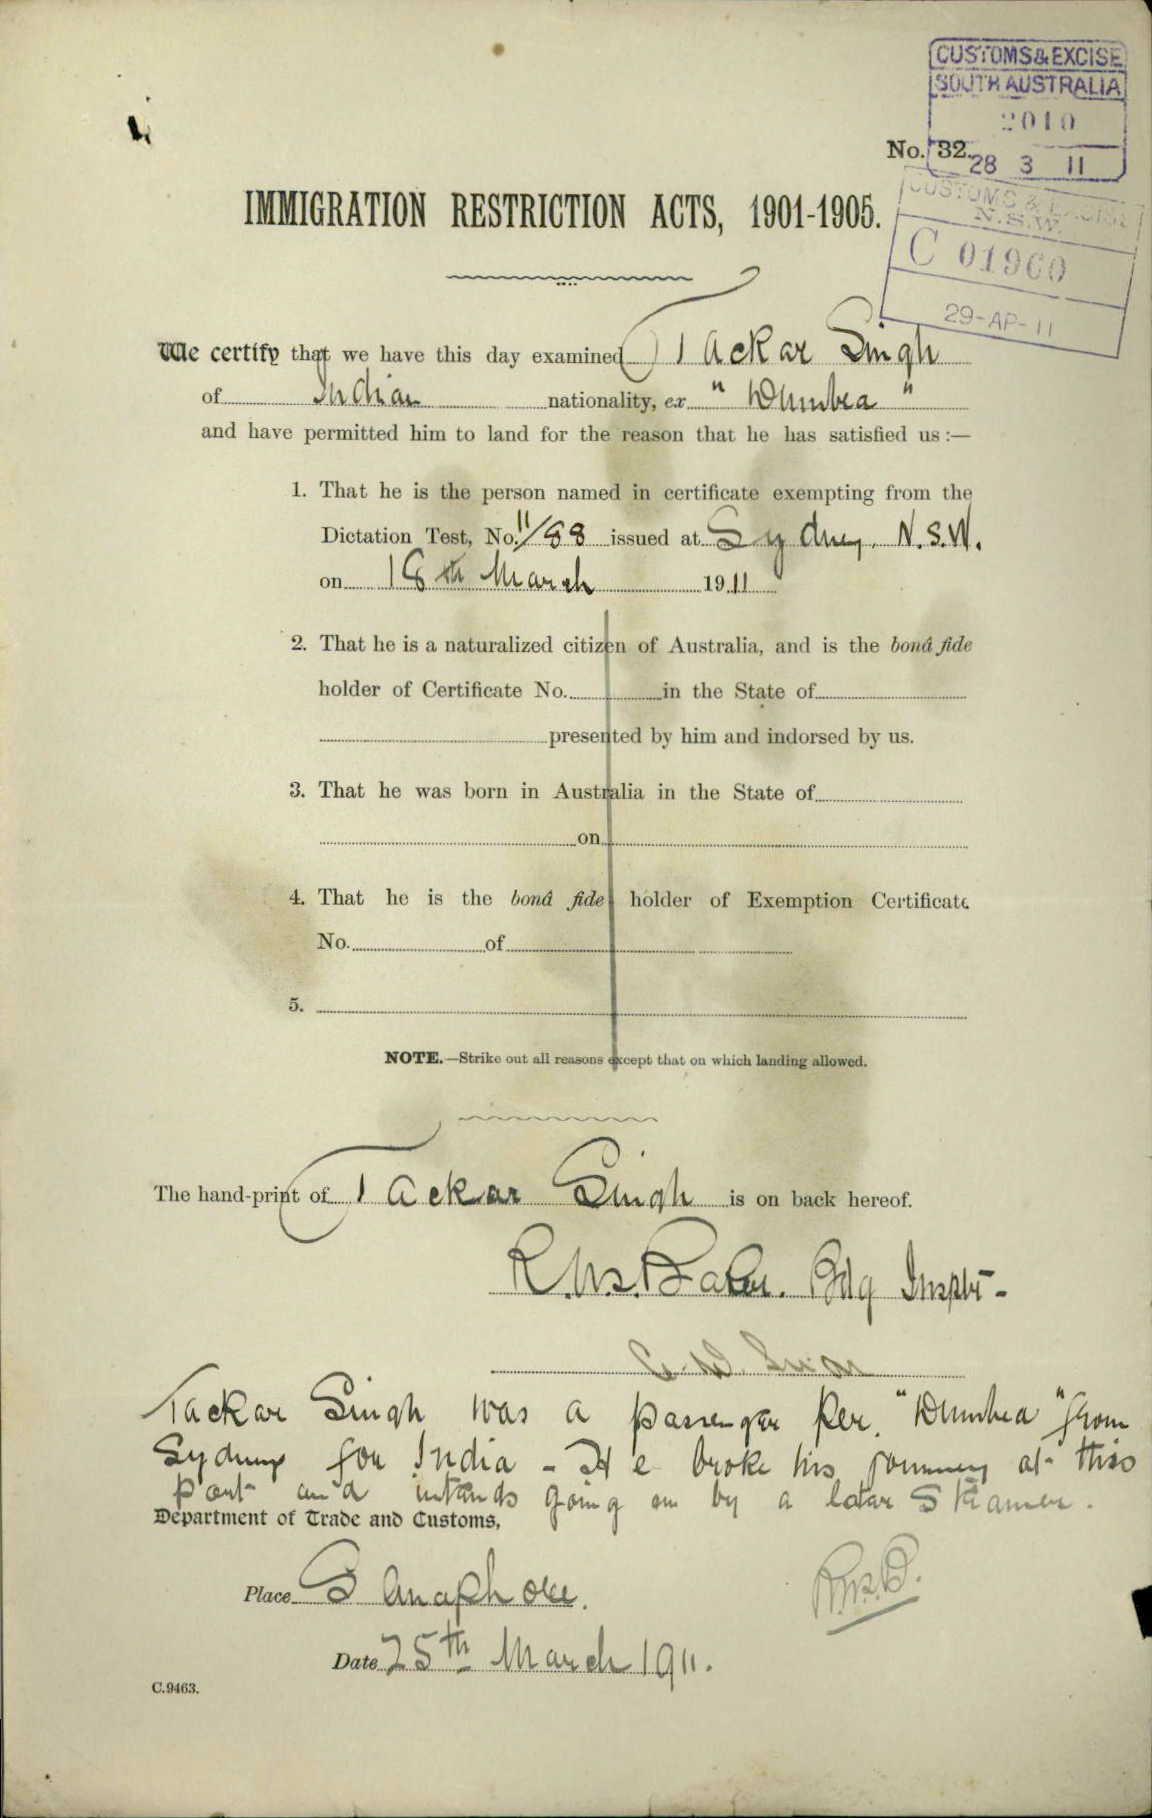 CUSTOMS & EXCISE
SOUTH AUSTRALIA
2010
28 3 11
No. 32.
CUSTOMS & EXCISE
N.S.W.
C 01960
29-AP-11
IMMIGRATION RESTRICTION ACTS, 1901-1905.
We certify that we have this day examined Tackar Singh
of Indian nationality, ex "Dumbea"
and have permitted him to land for the reason that he has satisfied us :—
1. That he is the person named in certificate exempting from the
Dictation Test, No. 11/88 issued at Sydney, N.S.W.
on 18th March 1911
2. That he is a naturalized citizen of Australia, and is the bonâ fide
holder of Certificate No. in the State of
presented by him and indorsed by us.
3. That he was born in Australia in the State of
on
4. That he is the bonâ fide holder of Exemption Certificate
No. of
5.
NOTE.—Strike out all reasons except that on which landing allowed.
The hand-print of Tackar Singh is on back hereof.
Bdg Inspr -
Tackar Singh was a passenger per "Dumbea" from
Sydney for India - He broke his journey at this
port and intends going on by a later Steamer.
Department of Trade and Customs,
Place Semaphore.
R.W.B.
Date 25th March 1911.
C.9463.